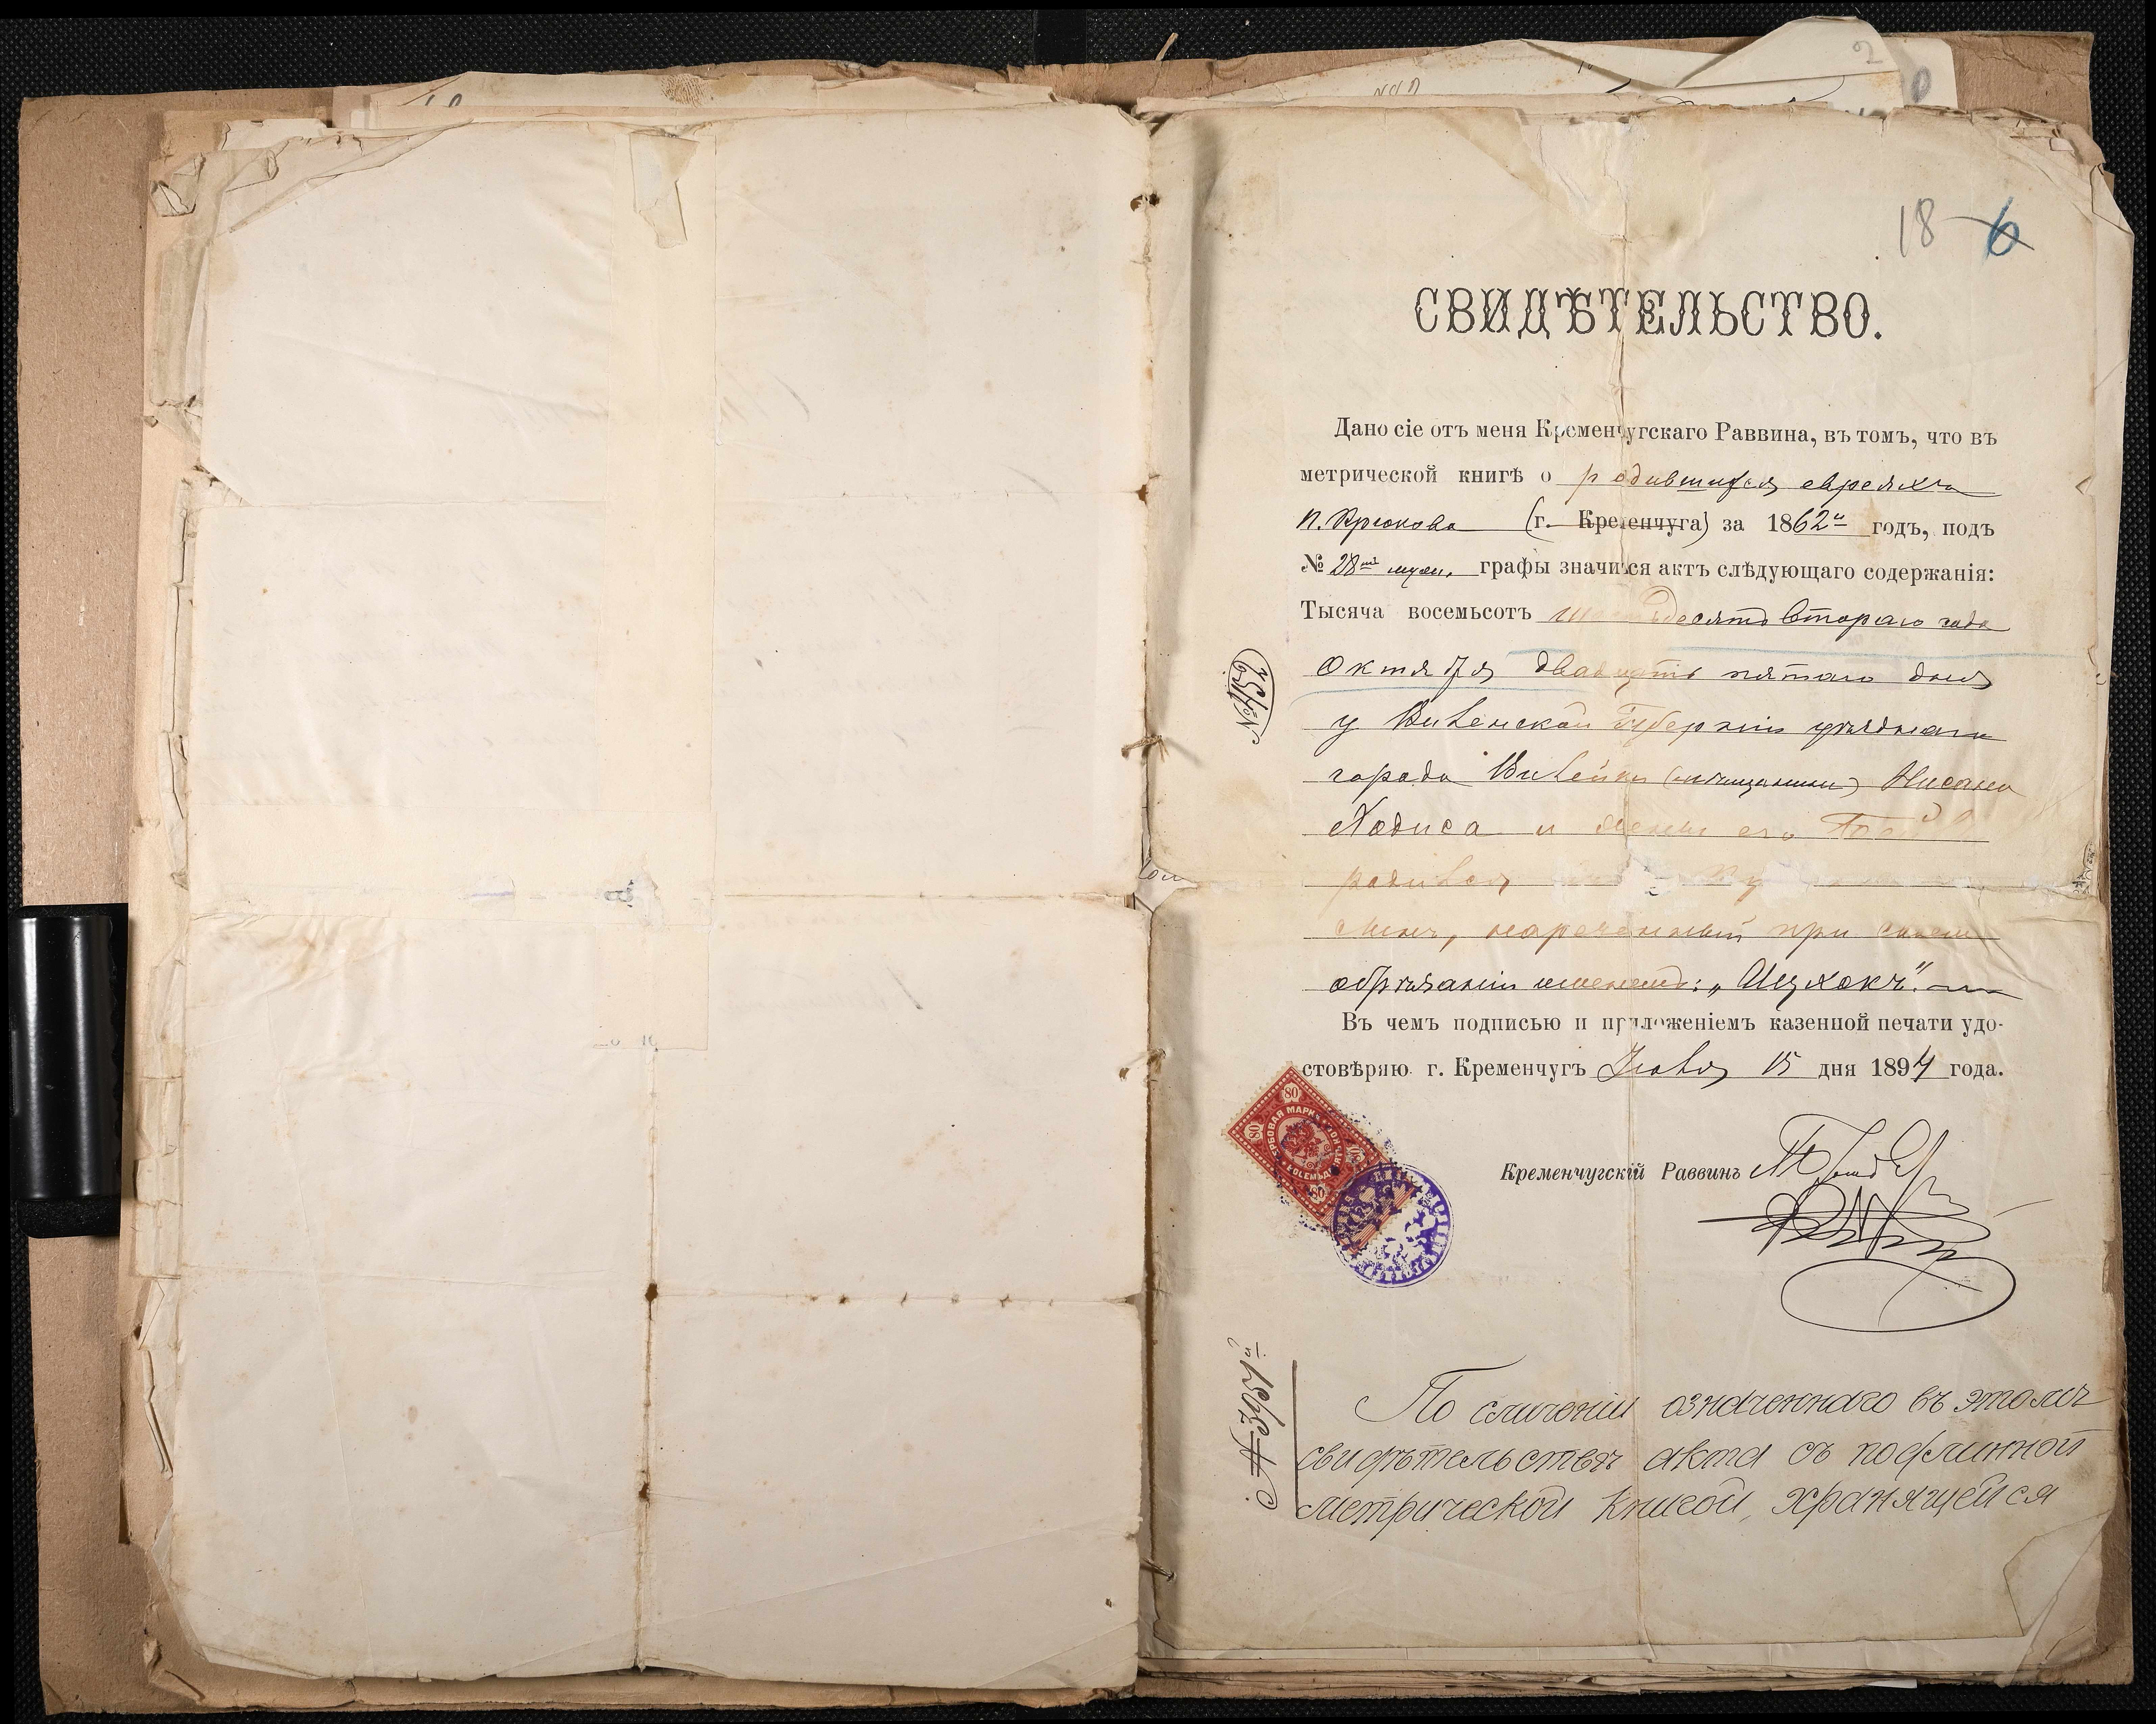 18 6
СВИДѢТЕЛЬСТВО.
Дано сіе отъ меня Кременчугскаго Раввина, въ томъ, что въ
метрической книгѣ о родившихся евреяхъ
п. Крюкова (г. Кременчуга) за 1862й годъ, подъ
№ 28мъ муж. графы значится актъ слѣдующаго содержанія:
Тысяча восемьсотъ шестьдесятъ втораго года
Октября двадцать пятаго дня
у Виленской Губерніи уѣзднаго
города Вилейки (мѣщанина) Нисана
Ходиса и жены его
родился
сынъ, нареченный при своемъ
обрѣзаніи именемъ: „Ицхокъ".
Въ чемъ подписью и приложеніемъ казенной печати удо-
стовѣряю г. Кременчугъ Іюля 15 дня 1894 года.
80
80
80
80
ГЕРБОВАЯ МАРКА
Кременчугскій Раввинъ
По сличеніи означеннаго въ этомъ
свидѣтельствѣ акта съ подлинной
метрической книгой, хранящейся